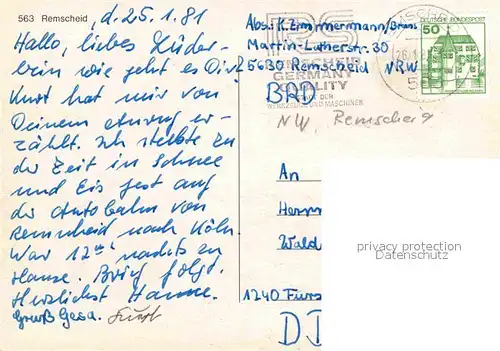 563 Remscheid
, d. 25.1.81
Hallo, liebes Süder-
bein wie geht es Dir,
Kurt hat mir von
Deinem Anruf er-
zählt. Ich steckte zu
der Zeit in Schnee
und Eis fest auf
der Autobahn von
Remscheid nach Köln.
War 12 nachts zu
Hause. Brief folgt.
Herzlichst Hanne.
Gruß Gesa. Kurt
Abs.: K. Zimmermann/
Martin-Lutherstr. 30
5630 Remscheid NRW
BRD
GERMANY
QUALITY
WERKZEUGE UND MASCHINEN
NW, Remscheid
DEUTSCHE BUNDESPOST
50
An
Herrn
Wald
1240 Fürs
D
privacy protection
Datenschutz